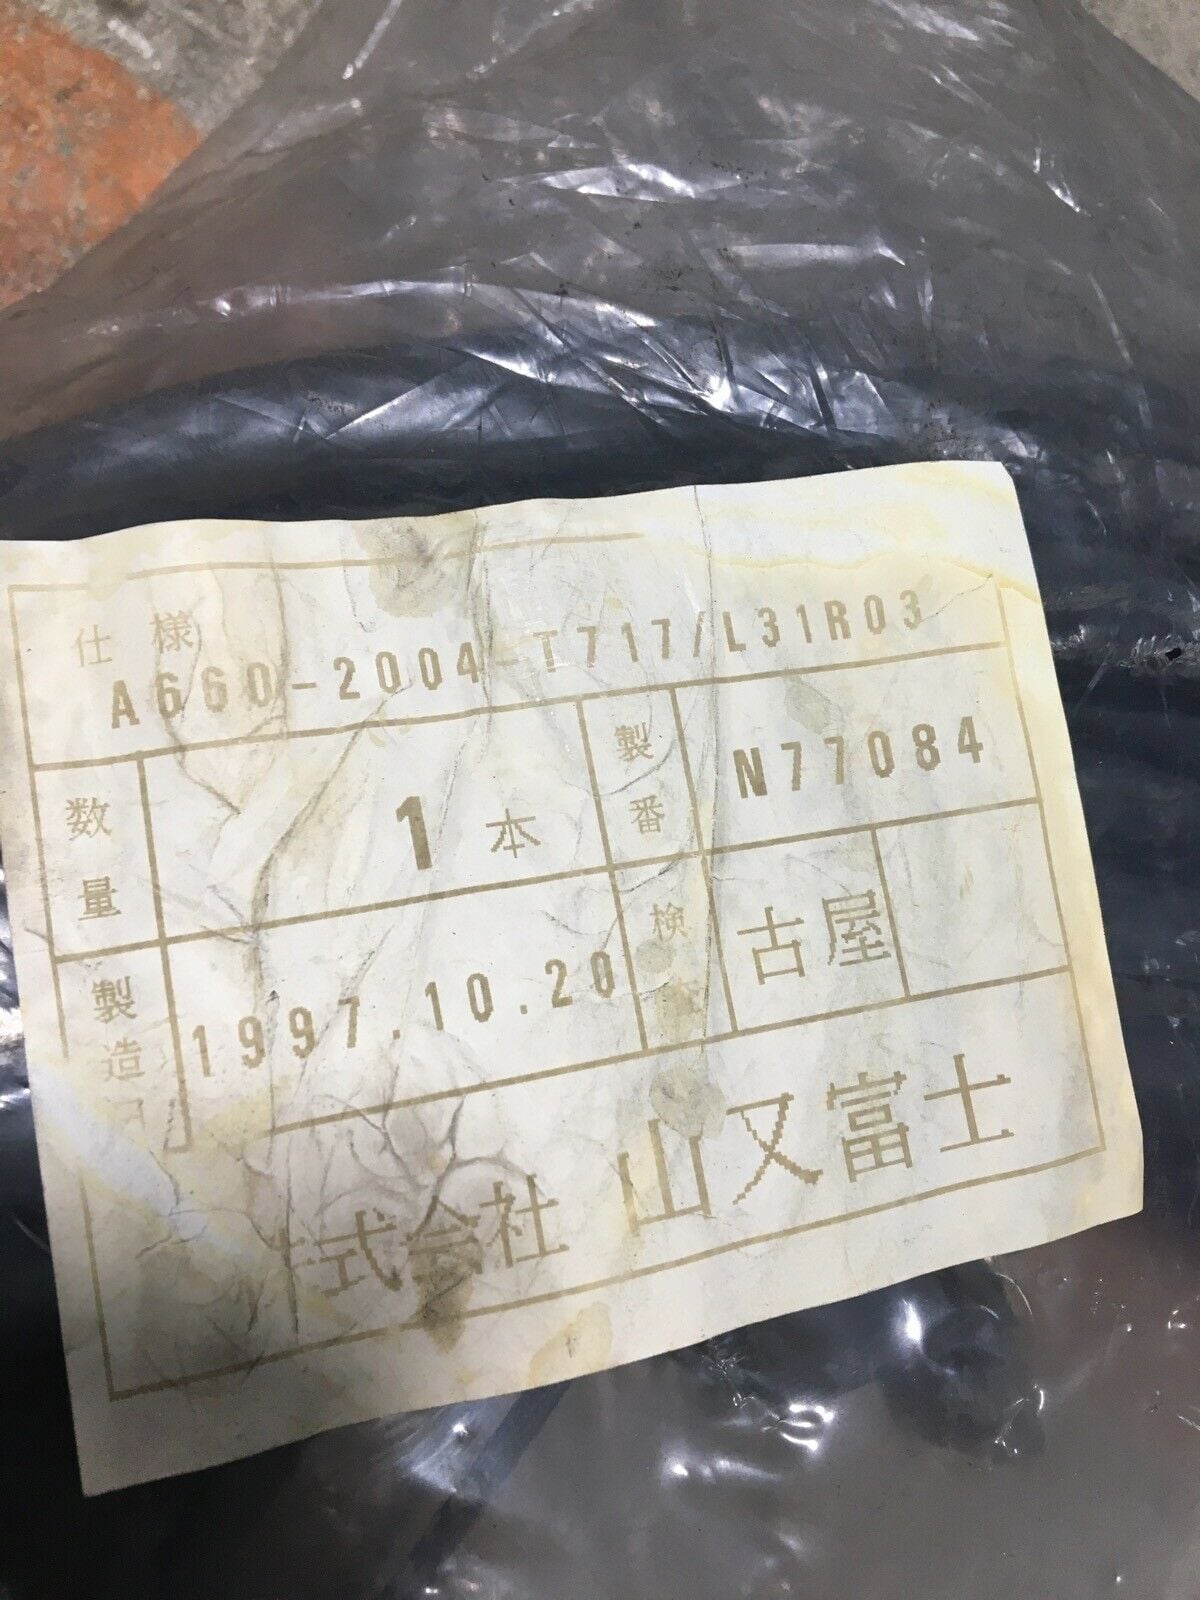 仕様
A660-2004-T717/L31R03
数量 1 本 製番 N77084
製造 1997.10.20 検 古屋
式会社 山又富士